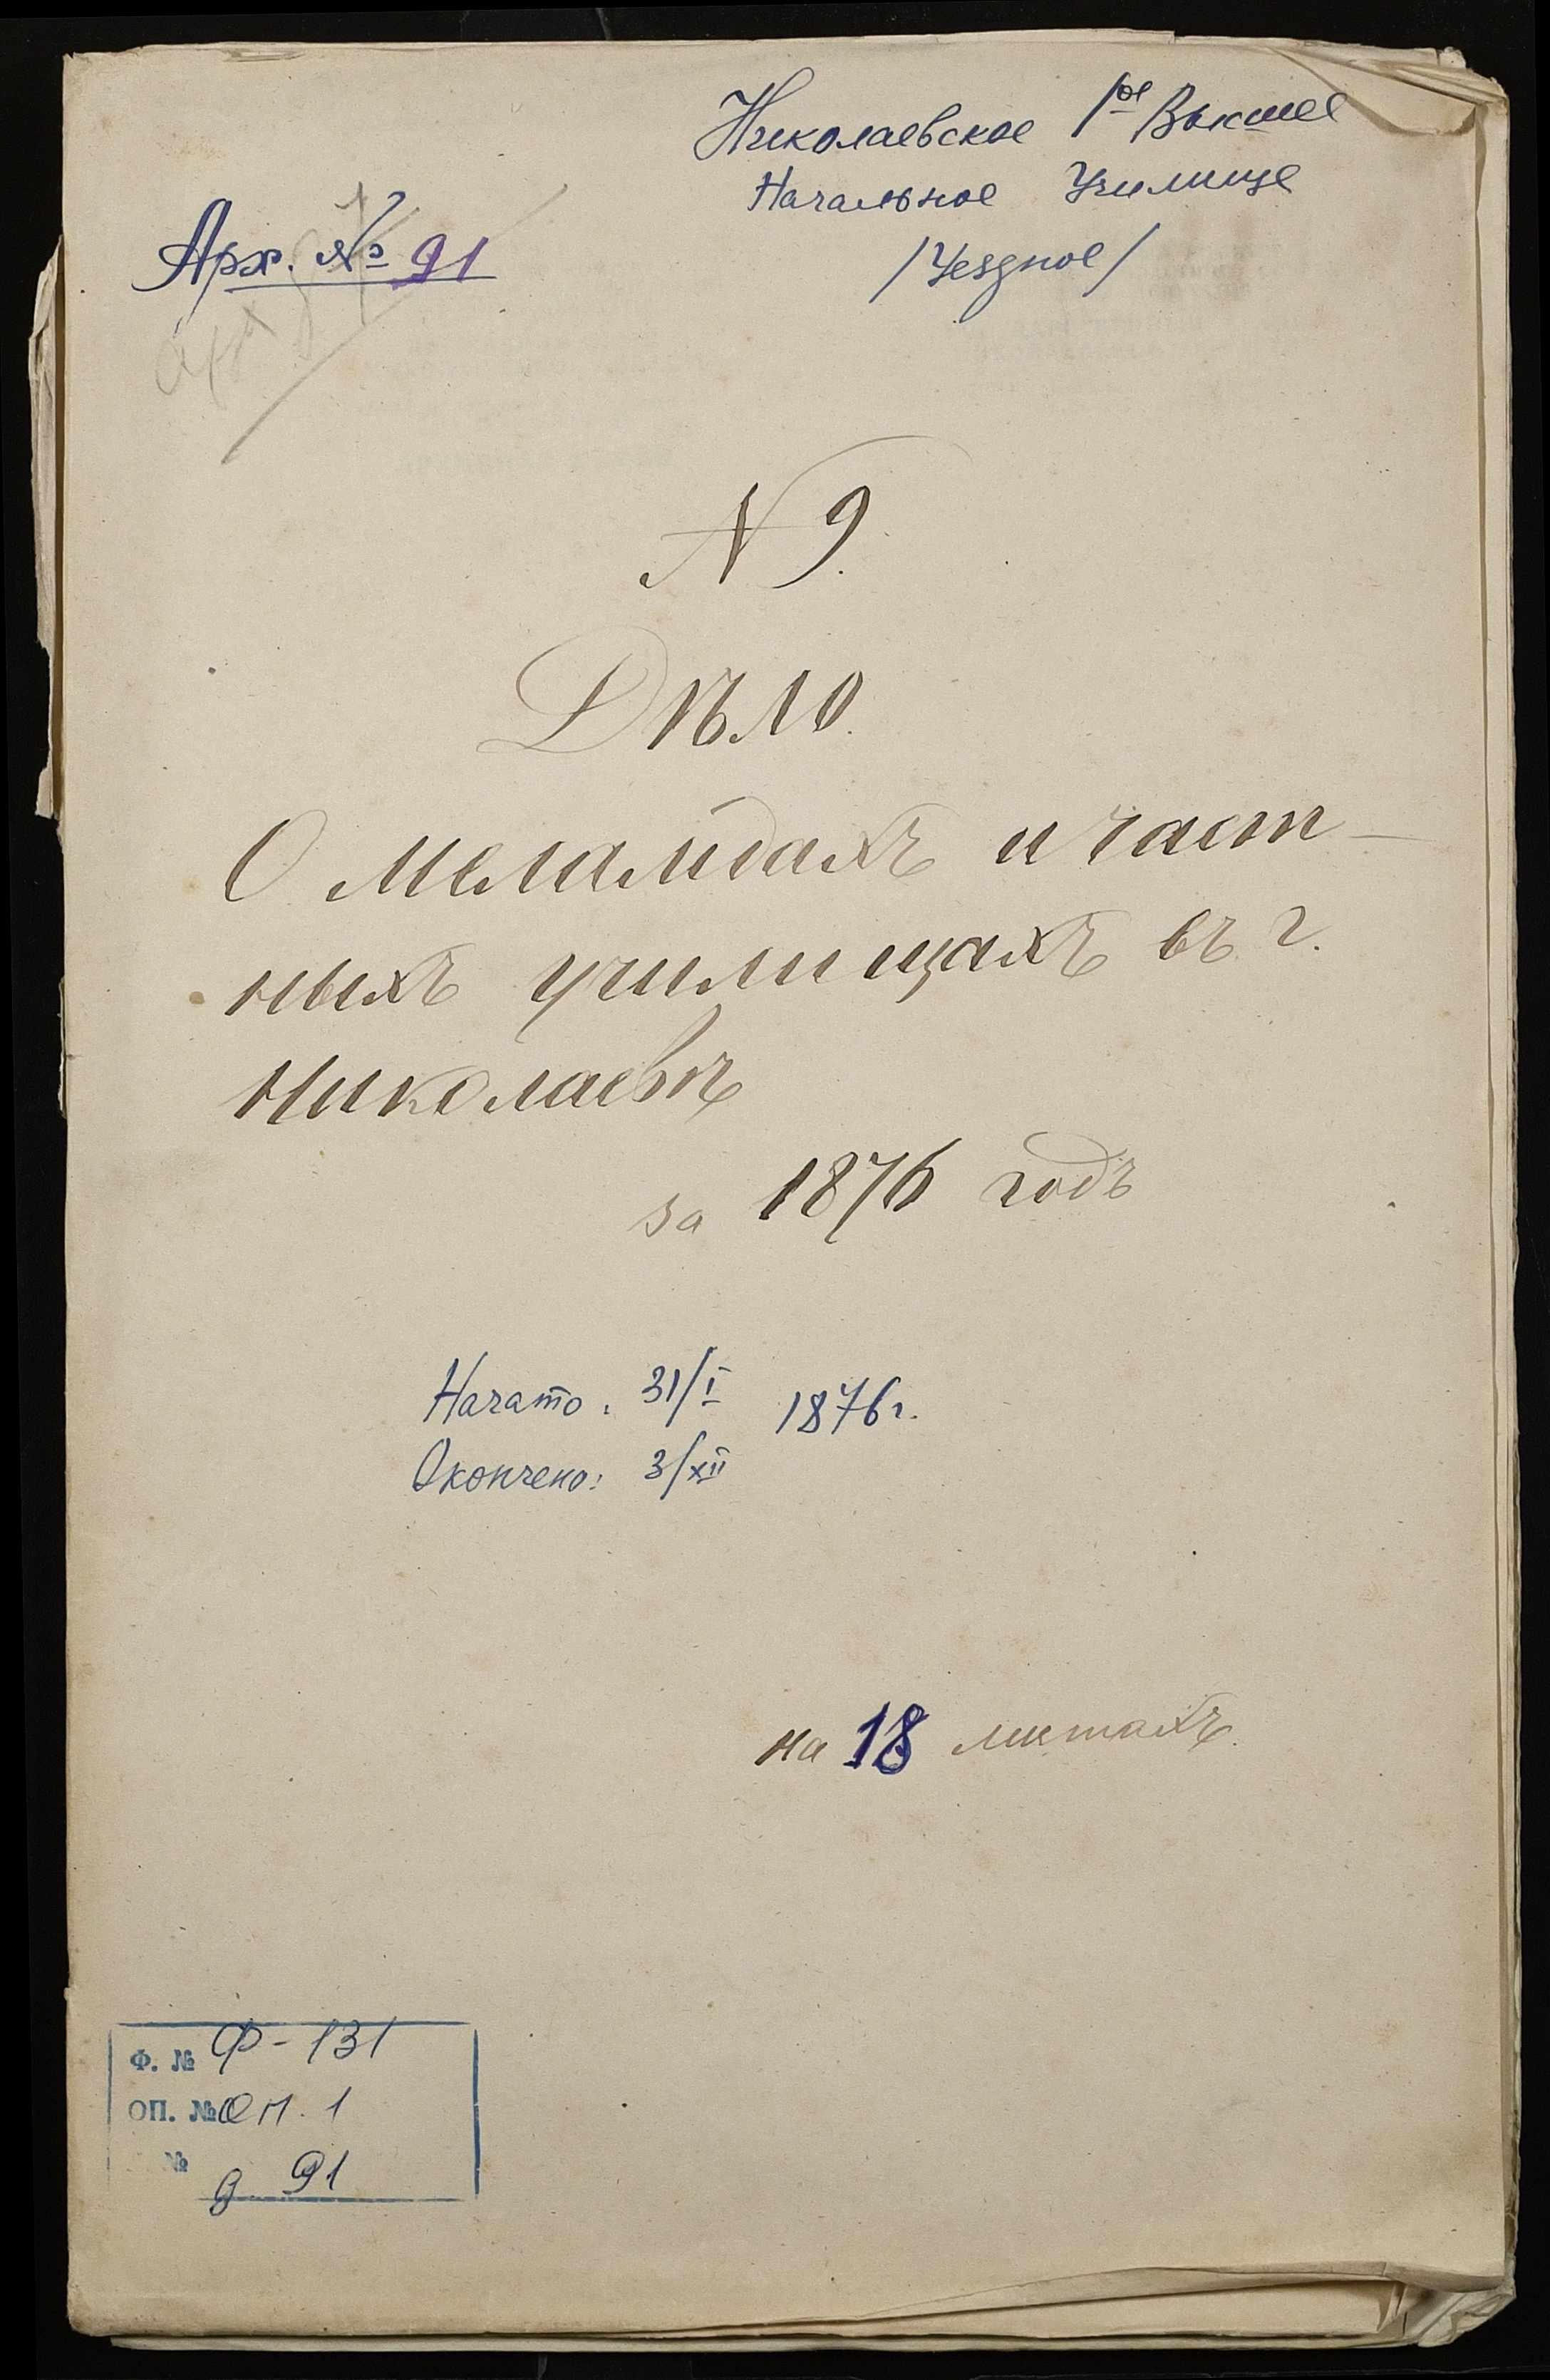 Николаевское 1ое Высшее
Начальное Училище
/Уездное/
Арх. № 91
N 9.
Дѣло
О меламдахъ и част-
ныхъ училищахъ въ г.
Николаевѣ
за 1876 годъ
Начато: 31/I 1876 г.
Окончено: 3/XII
на 18 листахъ.
Ф. № Ф-131
ОП. № оп. 1
№ д 91